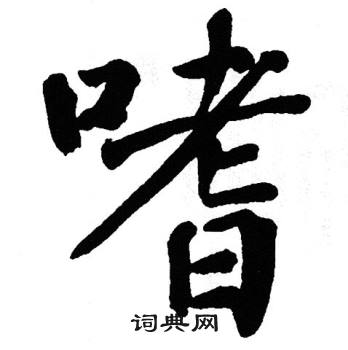 嗜
词典网